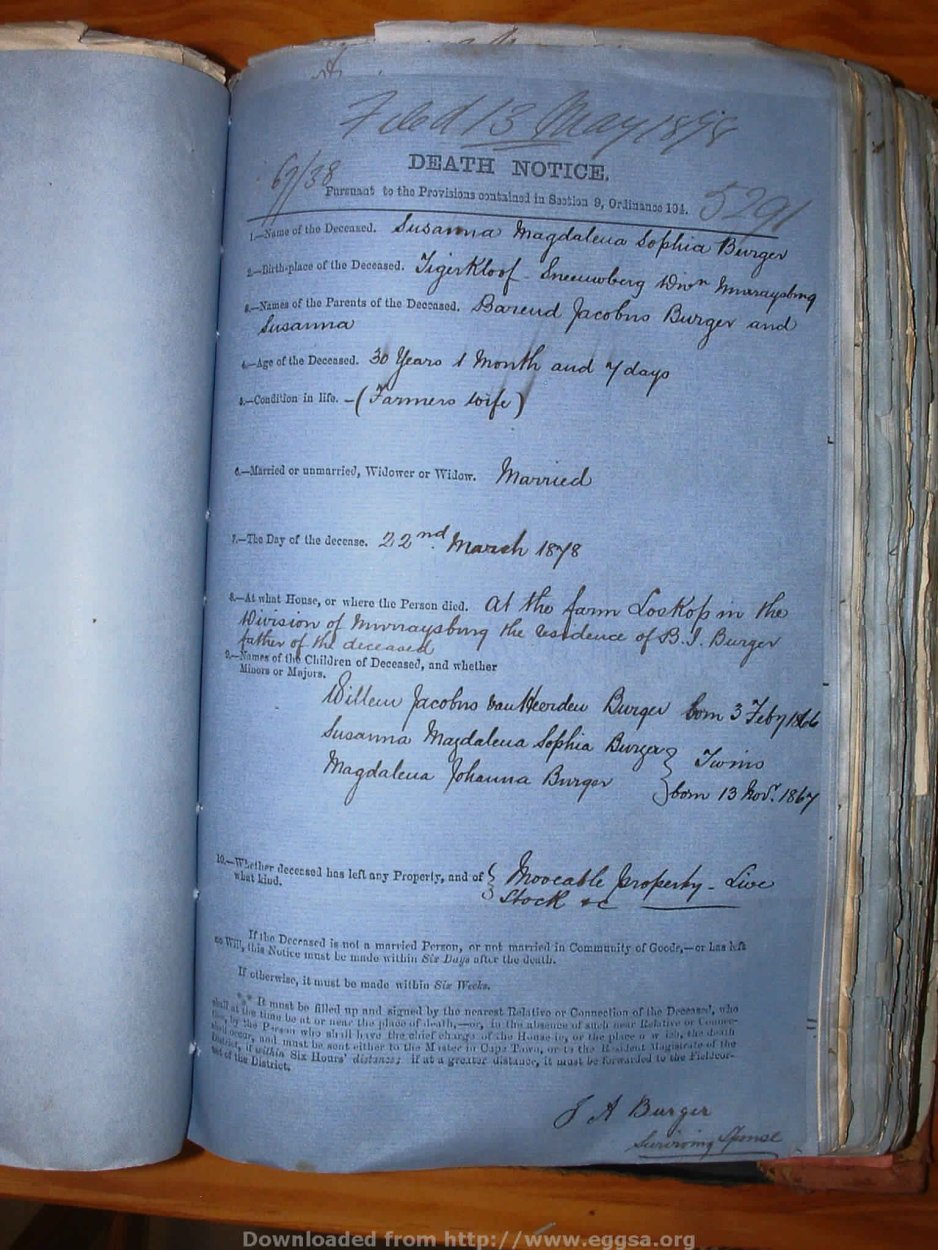 Filed 13 May 1878
69/38
DEATH NOTICE.
Pursuant to the Provisions contained in Section 9, Ordinance 104.
5291
1.—Name of the Deceased. Susanna Magdalena Sophia Burger
2.—Birth-place of the Deceased. Tigerkloof - Sneeuwberg Divn Murraysburg
3.—Names of the Parents of the Deceased. Barend Jacobus Burger and
Susanna
4.—Age of the Deceased. 30 Years 1 Month and 7 days
5.—Condition in life. - (Farmers wife)
6.—Married or unmarried, Widower or Widow. Married
7.—The Day of the decease. 22nd March 1878
8.—At what House, or where the Person died. At the farm Loskop in the
Division of Murraysburg the residence of B. J. Burger
father of the deceased
9.—Names of the Children of Deceased, and whether
Minors or Majors.
Willem Jacobus van Heerden Burger born 3 Feby 1866
Susanna Magdalena Sophia Burger } Twins
Magdalena Johanna Burger } born 13 Novr. 1867
10.—Whether deceased has left any Property, and of { Moveable property - Live
what kind. Stock &c
If the Deceased is not a married Person, or not married in Community of Goods,—or has left
no Will, this Notice must be made within Six Days after the death.
If otherwise, it must be made within Six Weeks.
*** It must be filled up and signed by the nearest Relative or Connection of the Deceased, who
shall at the time be at or near the place of death,—or, in the absence of such near Relative or Connec-
tion, by the Person who shall have the chief charge of the House in, or the place on which, the death
shall occur, and must be sent either to the Master in Cape Town, or to the Resident Magistrate of the
District, if within Six Hours' distance; if at a greater distance, it must be forwarded to the Fieldcor-
net of the District.
J A Burger
Surviving Spouse
Downloaded from http://www.eggsa.org